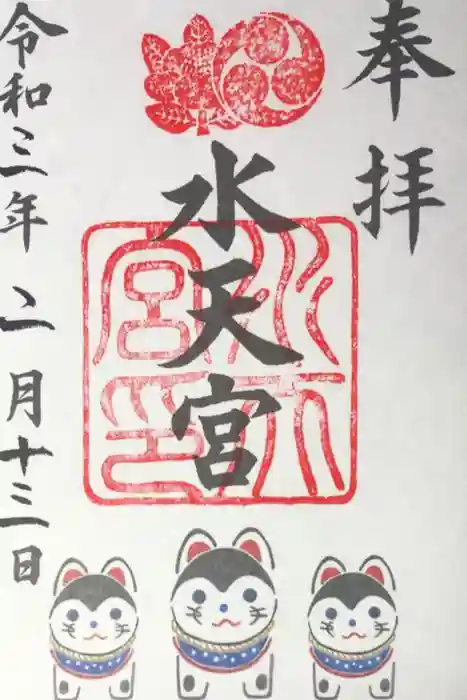 奉拝
水天宮
水天宮印
令和三年 二月十三日